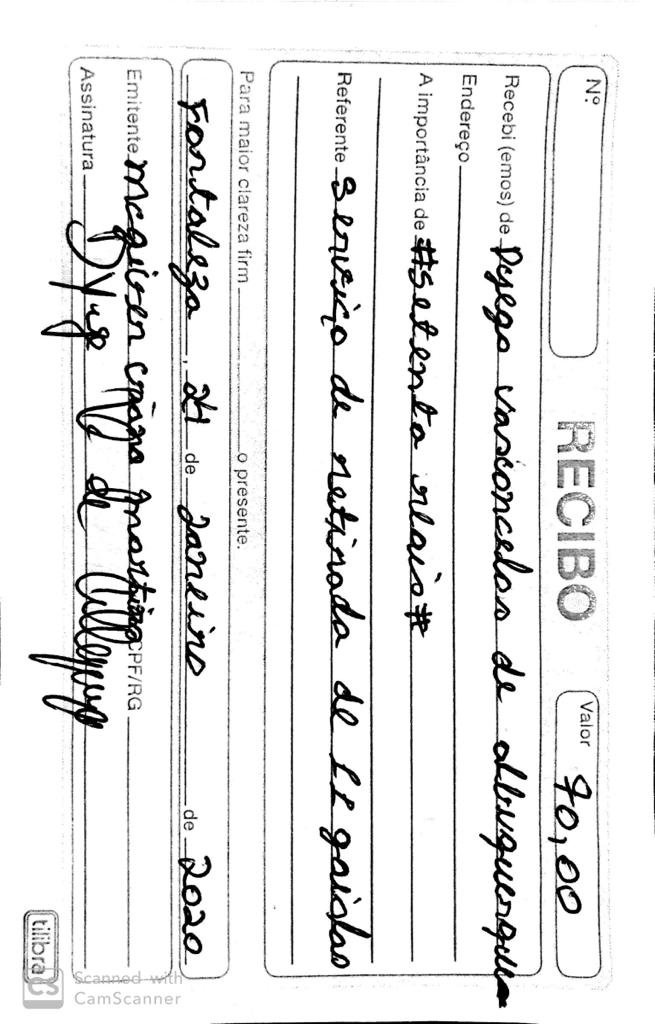 Nº RECIBO Valor 70,00
Recebi (emos) de Dyego vasconcelos de albuquerque
Endereço
A importância de #setenta reais#
Referente serviço de retirada de gaiolas
Para maior clareza firm o presente.
Fortaleza, 21 de Janeiro de 2020
Emitente CPF/RG
Assinatura
tilibra
CS Scanned with
CamScanner